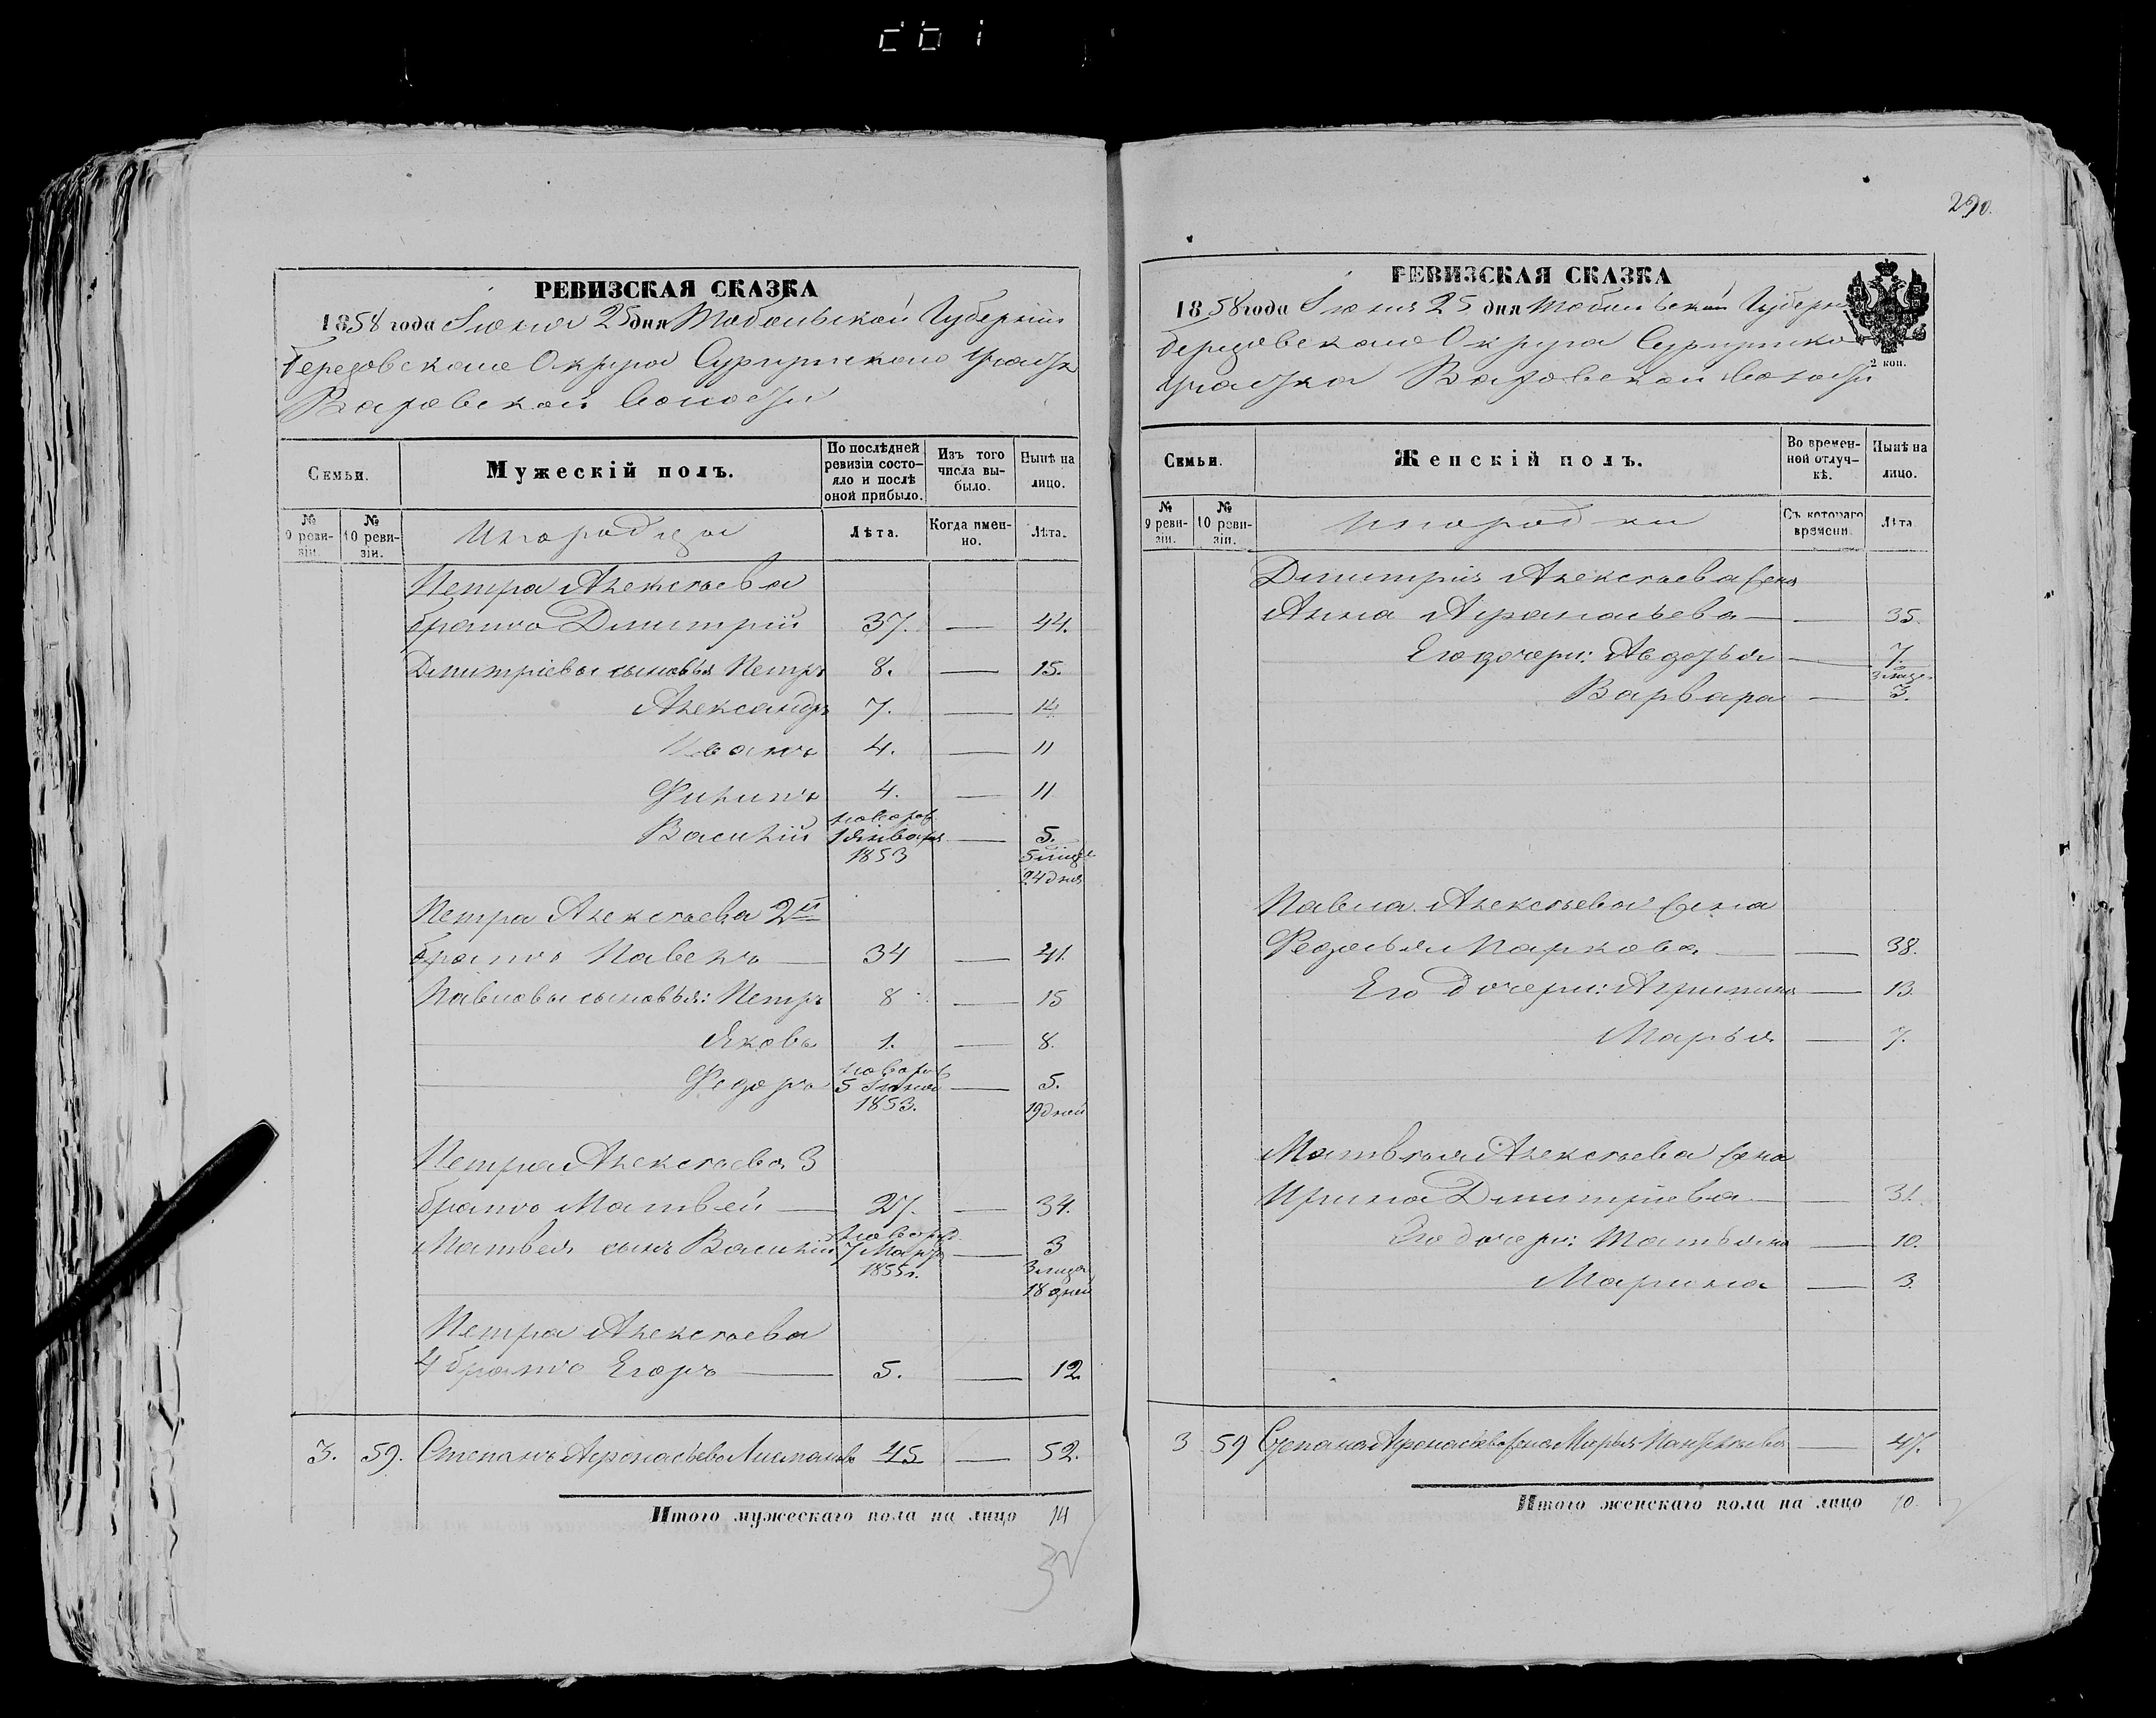 290.
РЕВИЗСКАЯ СКАЗКА
1858 года Июня 25 дня Тобольской Губерніи
Березовскаго Округа Сургутскаго участка
Ваховской волости
Семьи.
Мужескій полъ.
По послѣдней ревизіи состояло и послѣ оной прибыло.
Изъ того числа выбыло.
Нынѣ на лицо.
№ 9 ревизіи.
№ 10 ревизіи.
Инородцы
Лѣта.
Когда именно.
Лѣта.
Петра Алексѣева
братъ Дмитрій 37. — 44.
Дмитріевы сыновья Петръ 8. — 15.
Александръ 7. — 14
Иванъ 4. — 11
Филипъ 4. — 11
Василій новорож. 1 Января 1853 — 5. 5 мѣся. 24 дня
Петра Алексѣева 2й
братъ Павелъ — 34 — 41.
Павловы сыновья: Петръ 8 — 15
Яковъ 1. — 8.
Федоръ новорож 5 Июня 1853. — 5. 19 дней
Петра Алексѣева 3
братъ Матвей — 27. — 34.
Матвея сынъ Василій новорож. 7 Мар. 1855 г. — 3 3 мѣся. 18 дней
Петра Алексѣева
4 братъ Егоръ — 5. — 12
3. 59. Степанъ Афонасьевъ 45 — 52.
Итого мужескаго пола на лицо 14
РЕВИЗСКАЯ СКАЗКА
1858 года Июня 25 дня Тобольской Губерн
Березовскаго Округа Сургутско
участка Ваховской волости
2 коп.
Семьи.
Женскій полъ.
Во временной отлучкѣ.
Нынѣ на лицо.
№ 9 ревизіи.
№ 10 ревизіи.
Инородки
Съ котораго времени.
Лѣта
Дмитрія Алексѣева жена
Анна Афонасьева — — 35.
Его дочери: Авдотья — 7.
Варвара — 3 мѣся. 3.
Павла Алексѣева жена
Федосья Маркова — — 38.
Его дочери: Агрипина — 13.
Марья — 7.
Матвѣя Алексѣева жена
Ирина Дмитріева — — 31.
Его дочери: Татьяна — 10.
Марина — 3.
3 59 Степана Афонасьева жена Марья — 47.
Итого женскаго пола на лицо 10.